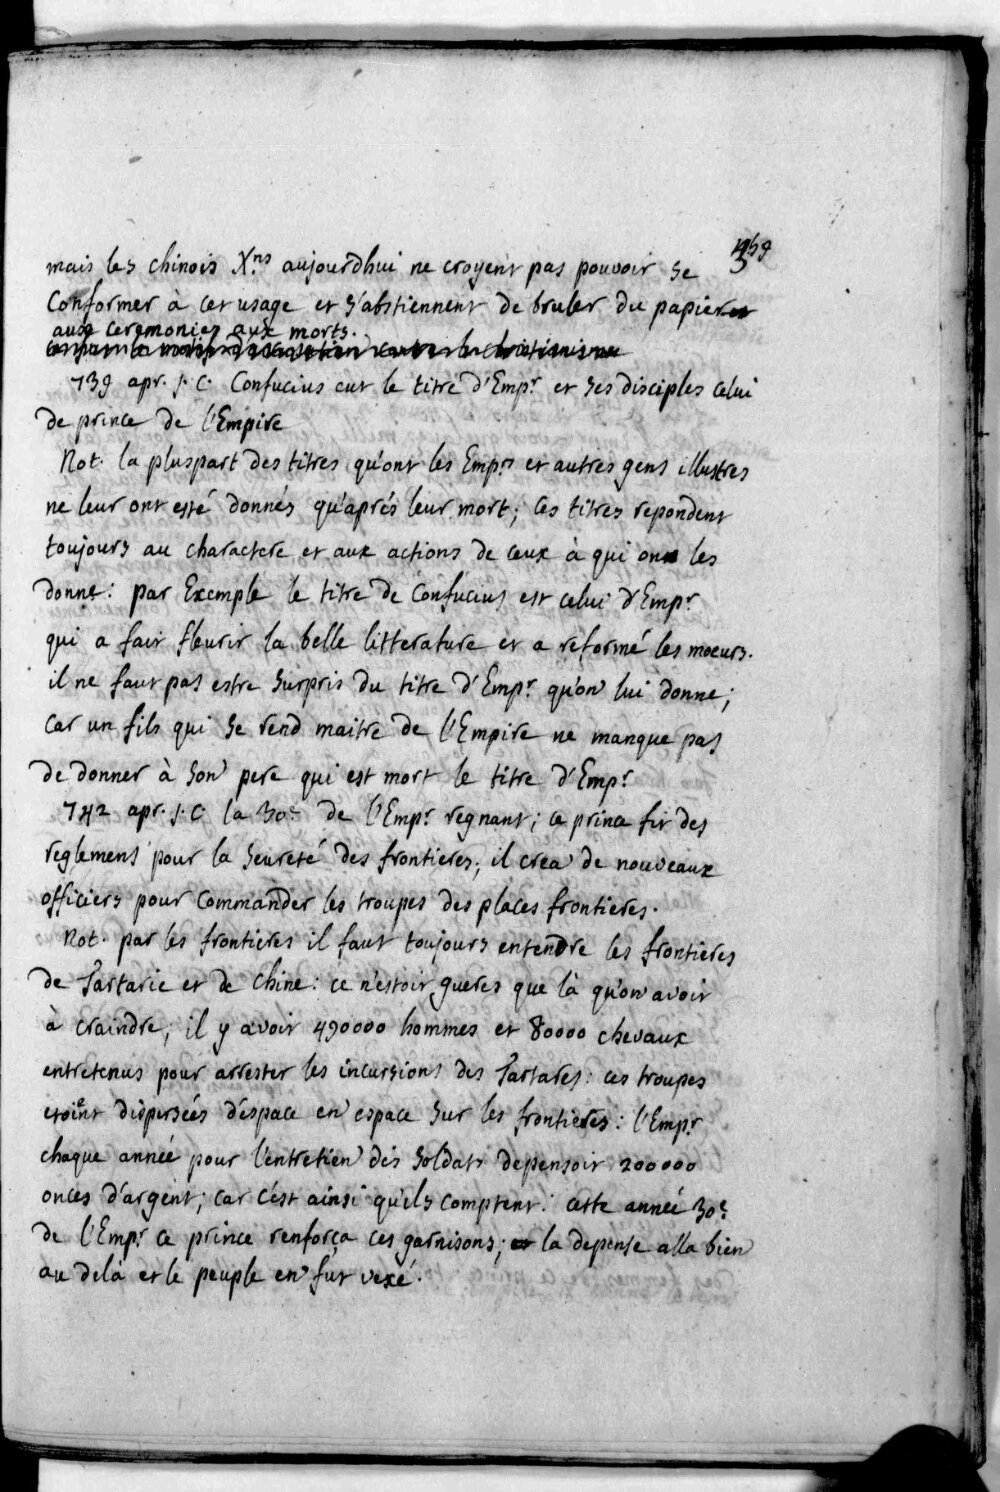 359
mais les chinois X.ns aujourdhui ne croyent pas pouvoir se
Conformer à cet usage et s'abstiennent de bruler du papier
aux ceremonies aux morts.
739 apr. J. C. Confucius eut le titre d'Emp.r et ses disciples celui
de prince de l'Empire
Not. la pluspart des titres qu'ont les Emp.rs et autres gens illustres
ne leur ont esté donnés qu'aprés leur mort; ces titres repondent
toujours au charactere et aux actions de ceux à qui on les
donne: par Exemple le titre de Confucius est celui d'Emp.r
qui a fait fleurir la belle litterature et a reformé les moeurs.
il ne faut pas estre surpris du titre d'Emp.r qu'on lui donne;
car un fils qui se rend maitre de l'Empire ne manque pas
de donner à son pere qui est mort le titre d'Emp.r
742 apr. J. C. la 30e de l'Emp.r regnant; ce prince fit des
reglemens pour la seureté des frontieres; il crea de nouveaux
officiers pour commander les troupes des places frontieres.
Not. par les frontieres il faut toujours entendre les frontieres
de Tartarie et de Chine: ce n'estoit gueres que là qu'on avoit
à craindre; il y avoit 490000 hommes et 80000 chevaux
entretenus pour arrester les incursions des Tartares: ces troupes
etoient disperseés d'espace en espace sur les frontieres: l'Emp.r
chaque anneé pour l'entretien des soldats depensoit 200000
onces d'argent; car c'est ainsi qu'ils comptent: cette anneé 30e
de l'Emp.r ce prince renforça ces garnisons; la depense alla bien
au delà et le peuple en fut vexé.